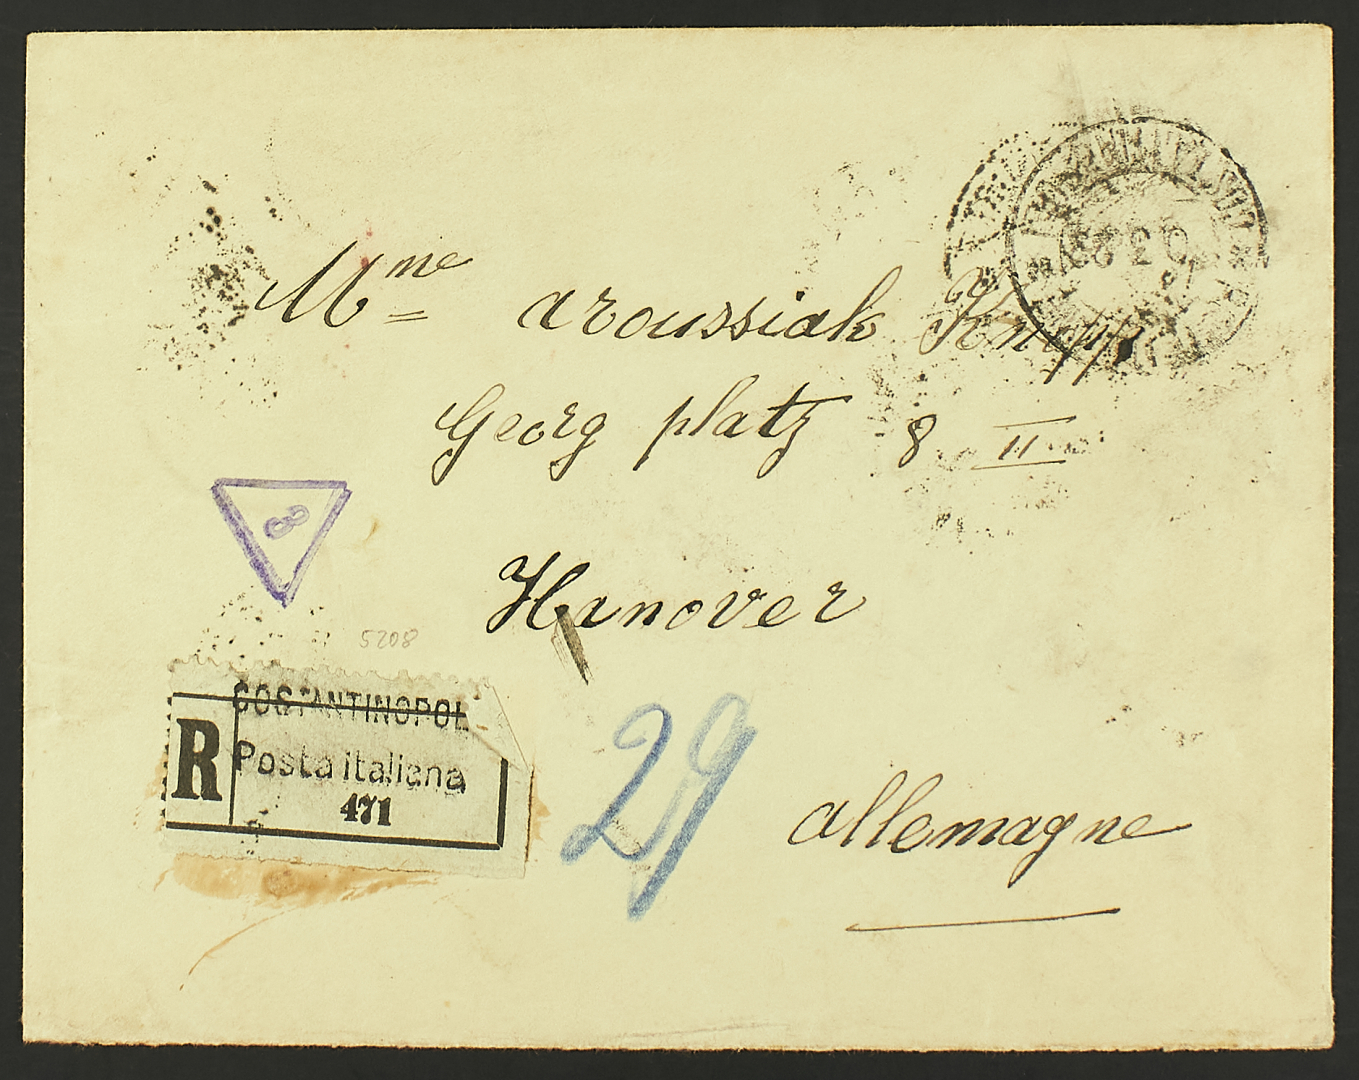 Mme aroussiak
Georg platz 8 II
Hanover
8
5208
COSTANTINOPOL
R
Posta italiana
471
29
allemagne